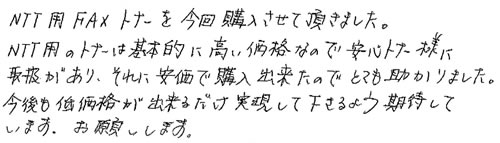 NTT用FAXトナーを今回購入させて頂きました。
NTT用のトナーは基本的に高い価格なので安心トナー様に
取扱があり、それに安価で購入出来たのでとても助かりました。
今後も低価格が出来るだけ実現して下さるよう期待して
います。お願いします。